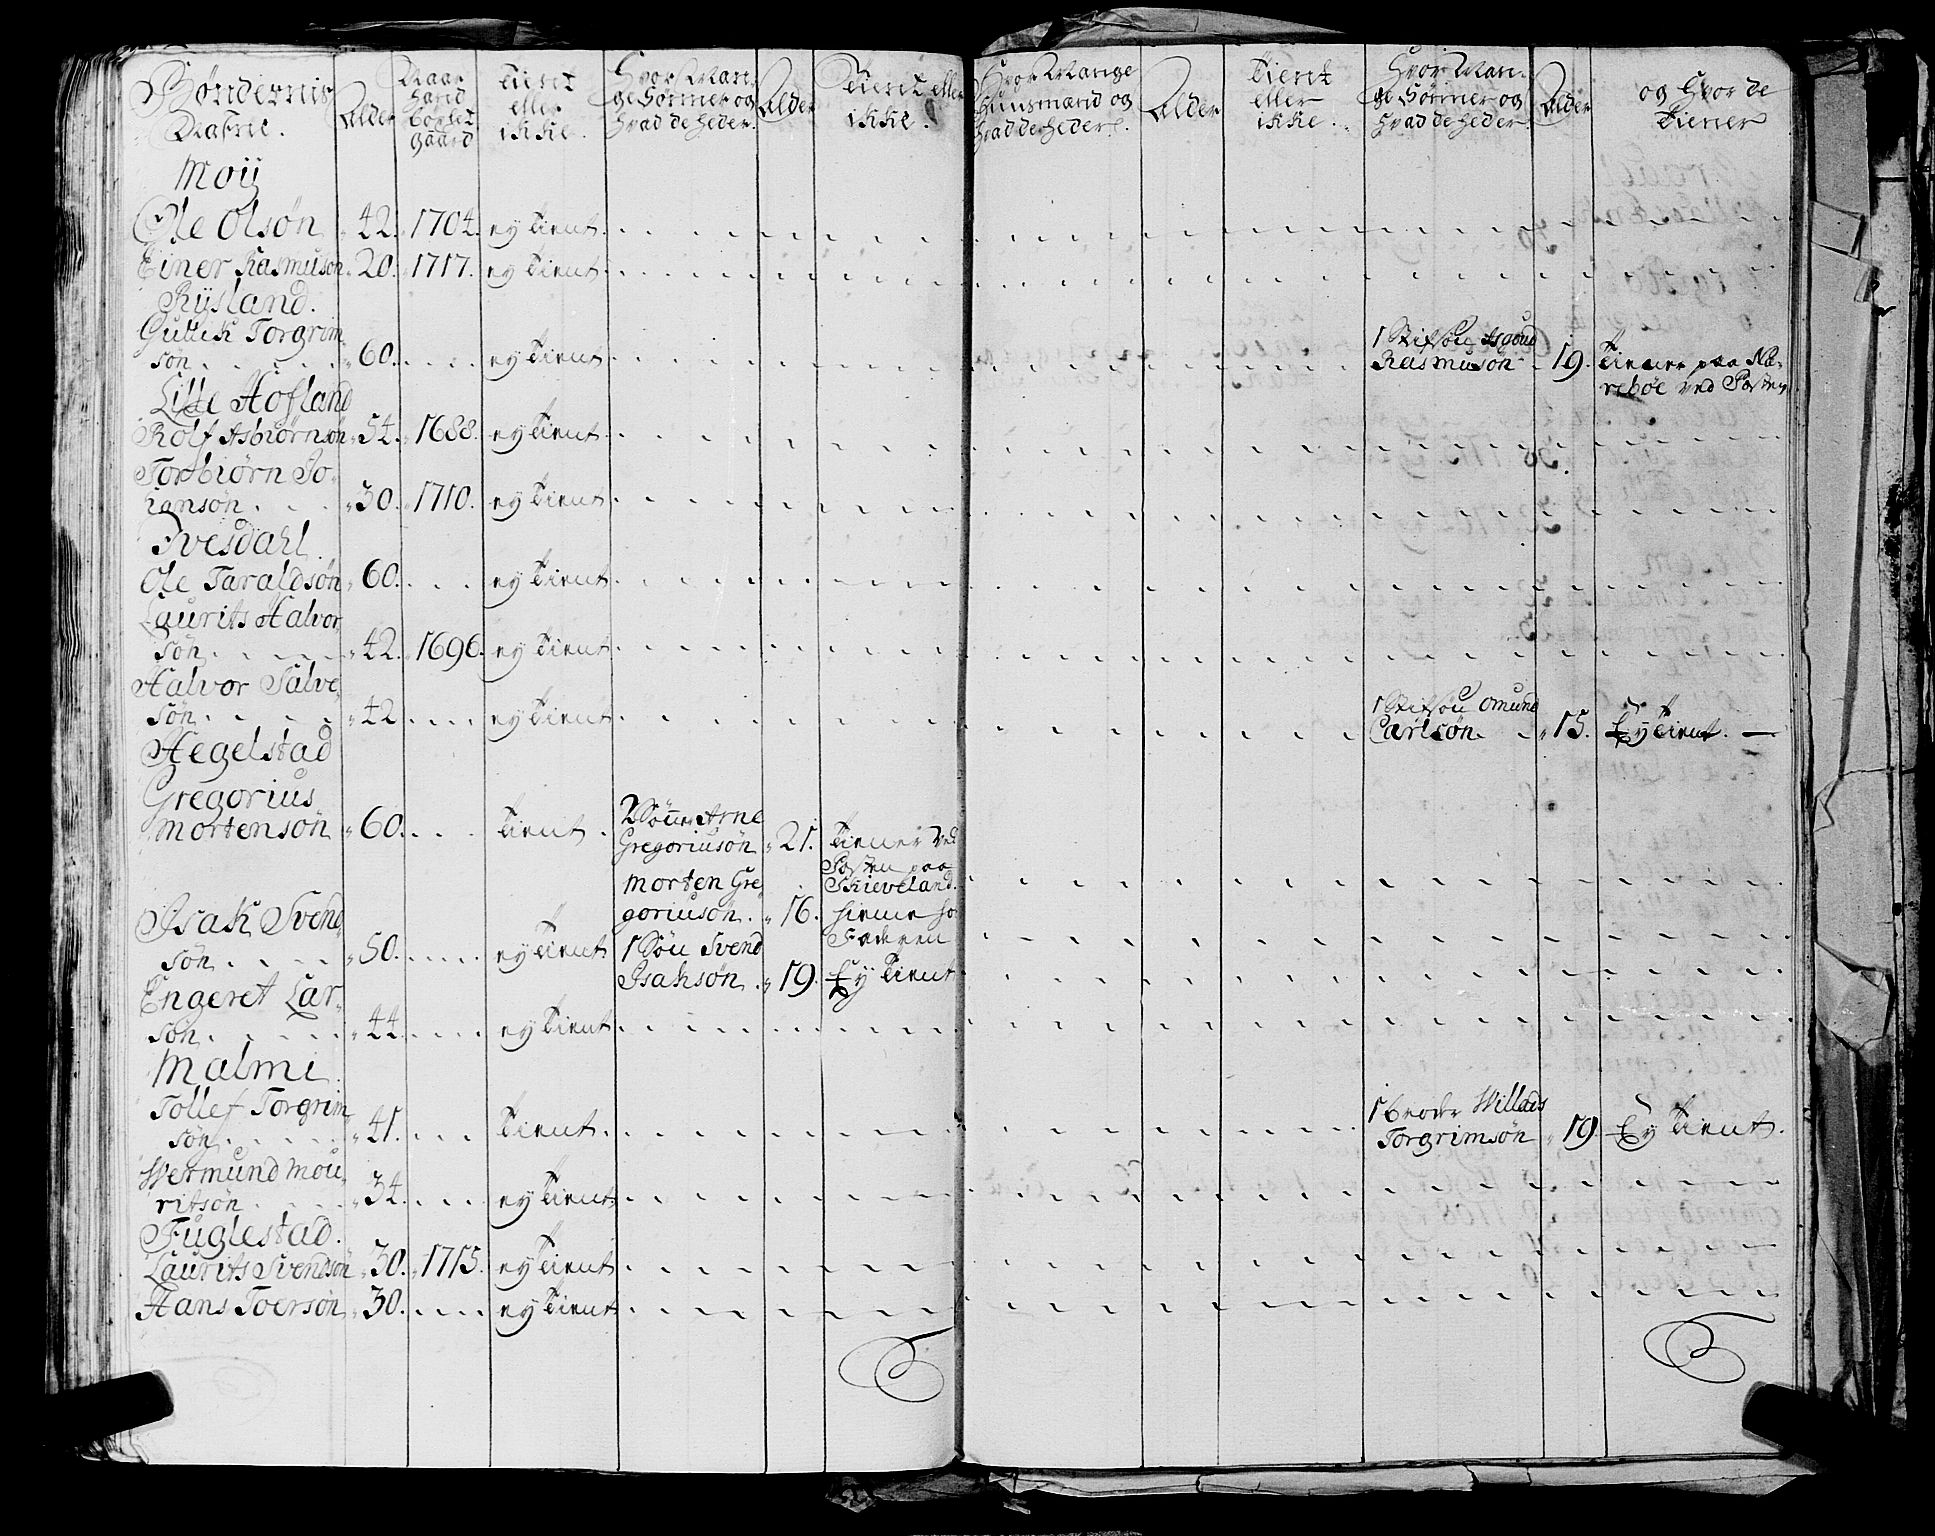 Bøndernis Nafne.
Alder
Naar hand bøxlet gaard
Tient eller ikke
Hvor Mange Sønner og hvad de heder.
Alder
Tient eller ikke.
Hvor Mange Huusmænd og hvad de heder.
Alder
Tient eller ikke.
Hvor Mange Sønner og hvad de heder.
Alder
og Hvor de Tiener
Moij
Ole Olsøn 42. 1704. ey tient.
Einer Rasmusøn 20. 1717. ey tient.
Rijsland.
Gullik Torgrim
søn 60. ey tient 1 Stifsøn Asgoud
Rasmusøn 19. tiener paa
ved Posten
Lille Hofland
Rolf Asbiørnsøn 54. 1688. ey tient.
Torbiørn Jo
hansøn 30. 1710. ey tient
Ivesdahl.
Ole Taraldsøn 60. ey tient
Laurits Halvor
søn 42. 1696. ey tient
Halvor Salve
søn 42 ey tient 1 Stifsøn Omund
Carlsøn. 15. Ey tient.
Hegelstad
Gregorius
Mortensøn 60. tient. 2 Sønner Arne
Gregoriusøn 21. tiener ved
Posten paa
Skieveland.
Morten Gre
goriusøn. 16. hieme hos
Faderen
Isak Svend
søn 50. ey tient 1 Søn Svend
Isaksøn 19. Ey tient
Engeret Lar
søn 44. ey tient
Malmi.
Tollef Torgrim
søn 41. tient. 1 broder Willads
Torgrimsøn 19. Ey tient.
Wermund Mou
ritsøn 34. ey tient
Fuglestad.
Laurits Svendsøn 30. 1715. ey tient
Hans Toersøn 30. ey tient